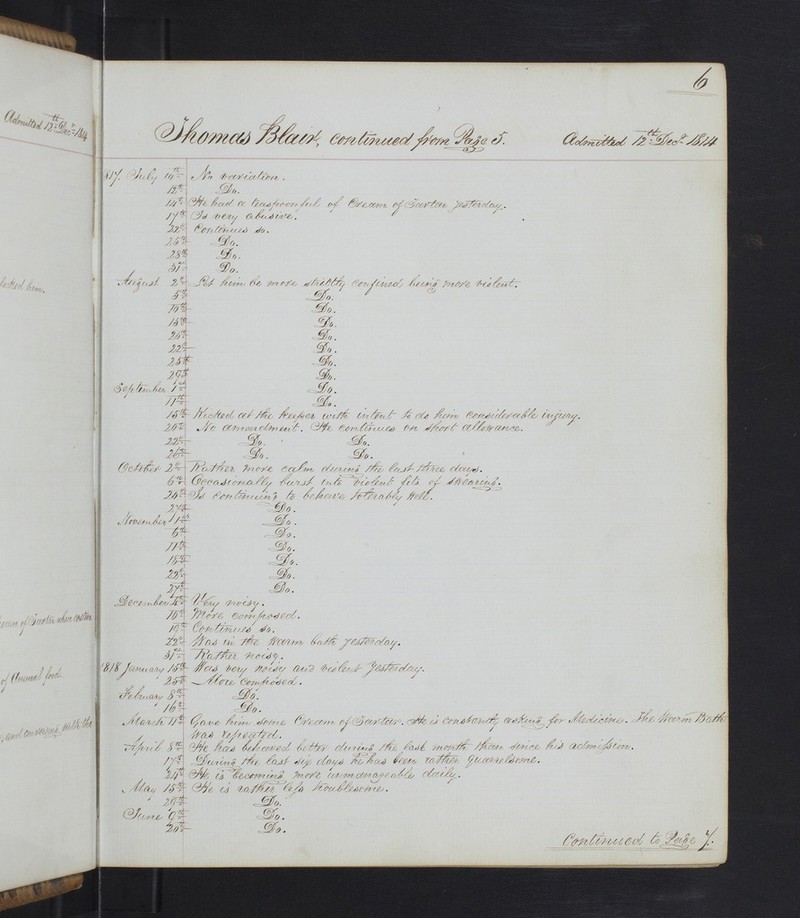 6
Admitted 12th Decr 1814
Thomas Blair, continued from Page 5. Admitted 12th Decr 1814
1817. July 10th No variation.
12th Do.
14th He had a teaspoonful of Cream of Tartar yesterday.
17th Is very abusive.
22d Continues so.
25th Do.
28th Do.
31st Do.
August 2d Let him be more strictly confined being more violent.
5th Do.
10th Do.
15th Do.
20th Do.
22d Do.
25th Do.
29th Do.
September 1st Do.
11th Do.
15th Kicked at the Keeper with intent to do him considerable injury.
20th No amendment. He continues on short allowance.
22d Do. Do.
26th Do. Do.
October 2d Rather more calm during the last three days.
6th Occasionally burst into violent fits of swearing.
20th Is continuing to behave tolerably well.
27th Do.
November 1st Do.
6th Do.
11th Do.
15th Do.
22d Do.
27th Do.
December 5th Very noisy.
10th More composed.
19th Continues so.
22d Was in the warm bath yesterday.
31st Rather noisy.
1818 January 15th Was very noisy and violent yesterday.
25th More composed.
February 8th Do.
16th Do.
March 11th Gave him some Cream of Tartar. He is constantly asking for Medicine. The Warm Bath
was repeated.
April 5th He has behaved better during the last month than since his admission.
17th During the last six days he has been rather quarrelsome.
24th He is becoming more unmanageable daily.
May 15th He is rather less troublesome.
29th Do.
June 9th Do.
20th Do.
Continued to Page 7.
him.
of Tartar when costive
of Animal food.